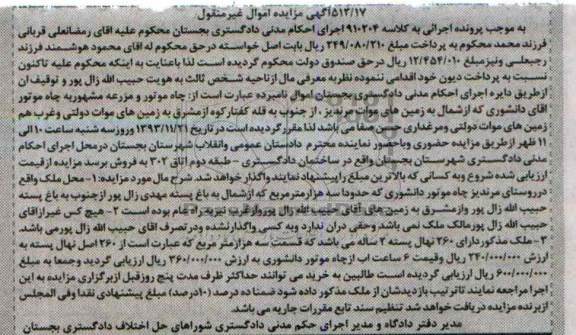 ۵۱۳/۱۷آگهی مزایده اموال غیرمنقول
به موجب پرونده اجرائی به کلاسه ۹۱۰۲۰۴ اجرای احکام مدنی دادگستری بجستان محکوم علیه آقای رمضانعلی قربانی
فرزند محمد محکوم به پرداخت مبلغ ۲۴۹/۰۸۰/۲۱۰ ریال بابت اصل خواسته درحق محکوم له آقای محمود هوشمند فرزند
رجبعلی ونیزمبلغ ۱۲/۴۵۴/۰۱۰ ریال درحق صندوق دولت محکوم گردیده است لذا باعنایت به اینکه محکوم علیه تاکنون
نسبت به پرداخت دیون خود اقدامی ننموده نظربه معرفی مال ازناحیه شخص ثالث به هویت حبیب الله زال پور و توقیف آن
ازطریق دایره اجرای احکام مدنی دادگستری بجستان اموال نامبرده عبارت است از: چاه موتور و مزرعه مشهوربه چاه موتور
آقای دانشوری که ازشمال به زمین های موات مرندیز ، از جنوب به قله کفتارکوه ازمشرق به زمین های موات دولتی وغرب هم
زمین های موات دولتی ومرغداری حسن صفا می باشد لذا مقررگردیده است در تاریخ ۱۳۹۳/۱۱/۲۱ وروزسه شنبه ساعت ۱۰ الی
۱۱ ظهر ازطریق مزایده حضوری وباحضور نماینده محترم دادستان عمومی وانقلاب شهرستان بجستان درمحل اجرای احکام
مدنی دادگستری شهرستان بجستان واقع در ساختمان دادگستری - طبقه دوم اتاق ۳۰۲ به فروش برسد مزایده ازقیمت
ارزیابی شده شروع وبه کسانی که بالاترین مبلغ راپیشنهاد نمایند واگذار خواهد شد. شرح مال مورد مزایده: ۱- محل ملک واقع
درروستای مرندیز چاه موتور دانشوری که حدودا سد هزارمترمربع که ازشمال به باغ پسته مهدی زال پور ازجنوب به باغ پسته
حبیب الله زال پور وازمشرق به زمین های آقای حبیب الله زال پوروازغرب نیزبه راه عام بوده است ۲- هیچ کس غیرازآقای
حبیب الله زال پورمالک ملک نمی باشد وحقی درآن ندارد وبه کسی واگذارنشده ودرتصرف آقای حبیب الله زال پورمی باشد.
۳- ملک مذکوردارای ۲۶۰ نهال پسته ۲ ساله می باشد که قسمت سه هزارمترمربع که عبارت است از ۲۶۰ اصل نهال پسته به
ارزش ۲۴۰/۰۰۰/۰۰۰ ریال وقیمت ۶ ساعت آب ازچاه موتور دانشوری به ارزش ۳۶۰/۰۰۰/۰۰۰ ریال ارزیابی گردید وجمعا به مبلغ
۶۰۰/۰۰۰/۰۰۰ ریال ارزیابی گردیده است طالبین به خرید می توانند حداکثر ظرف مدت پنج روزقبل ازبرگزاری مزایده به این
اجرا مراجعه نمایند تاترتیب بازدیدشان از ملک مذکور داده شود ضمنا ده درصد (۱۰درصد) مبلغ پیشنهادی نقدا وفی المجلس
ازبرنده مزایده دریافت خواهد شد تنظیم سند تابع مقررات جاریه می باشد.
مدیر دفتر دادگاه و مدیر اجرای حکم مدنی دادگستری شوراهای حل اختلاف دادگستری بجستان